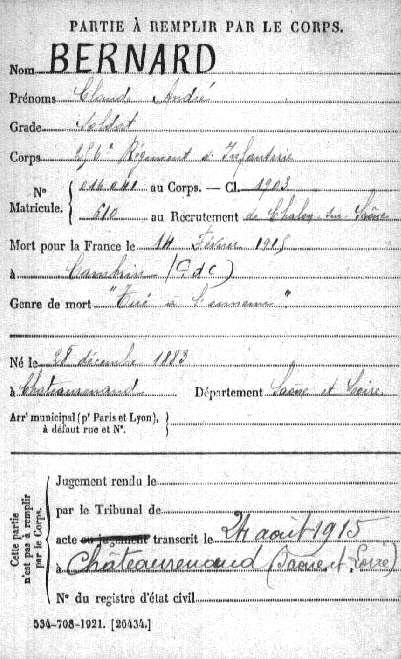 PARTIE À REMPLIR PAR LE CORPS.
Nom BERNARD
Prénoms Claude André
Grade Soldat
Corps 256e Régiment d'Infanterie
Nº Matricule. { 016041 au Corps. — Cl. 1903
610 au Recrutement de Chalon-sur-Saône
Mort pour la France le 14 Février 1915
à Cambrin (P de C)
Genre de mort "Tué à l'ennemi".
Né le 28 décembre 1883
à Châteaurenaud Département Saône et Loire
Arrt municipal (pr Paris et Lyon), }
à défaut rue et Nº. }
Cette partie n'est pas à remplir par le Corps.
Jugement rendu le
par le Tribunal de
acte ou jugement transcrit le 24 août 1915
à Châteaurenaud (Saône et Loire)
Nº du registre d'état civil
534-708-1921. [26434.]